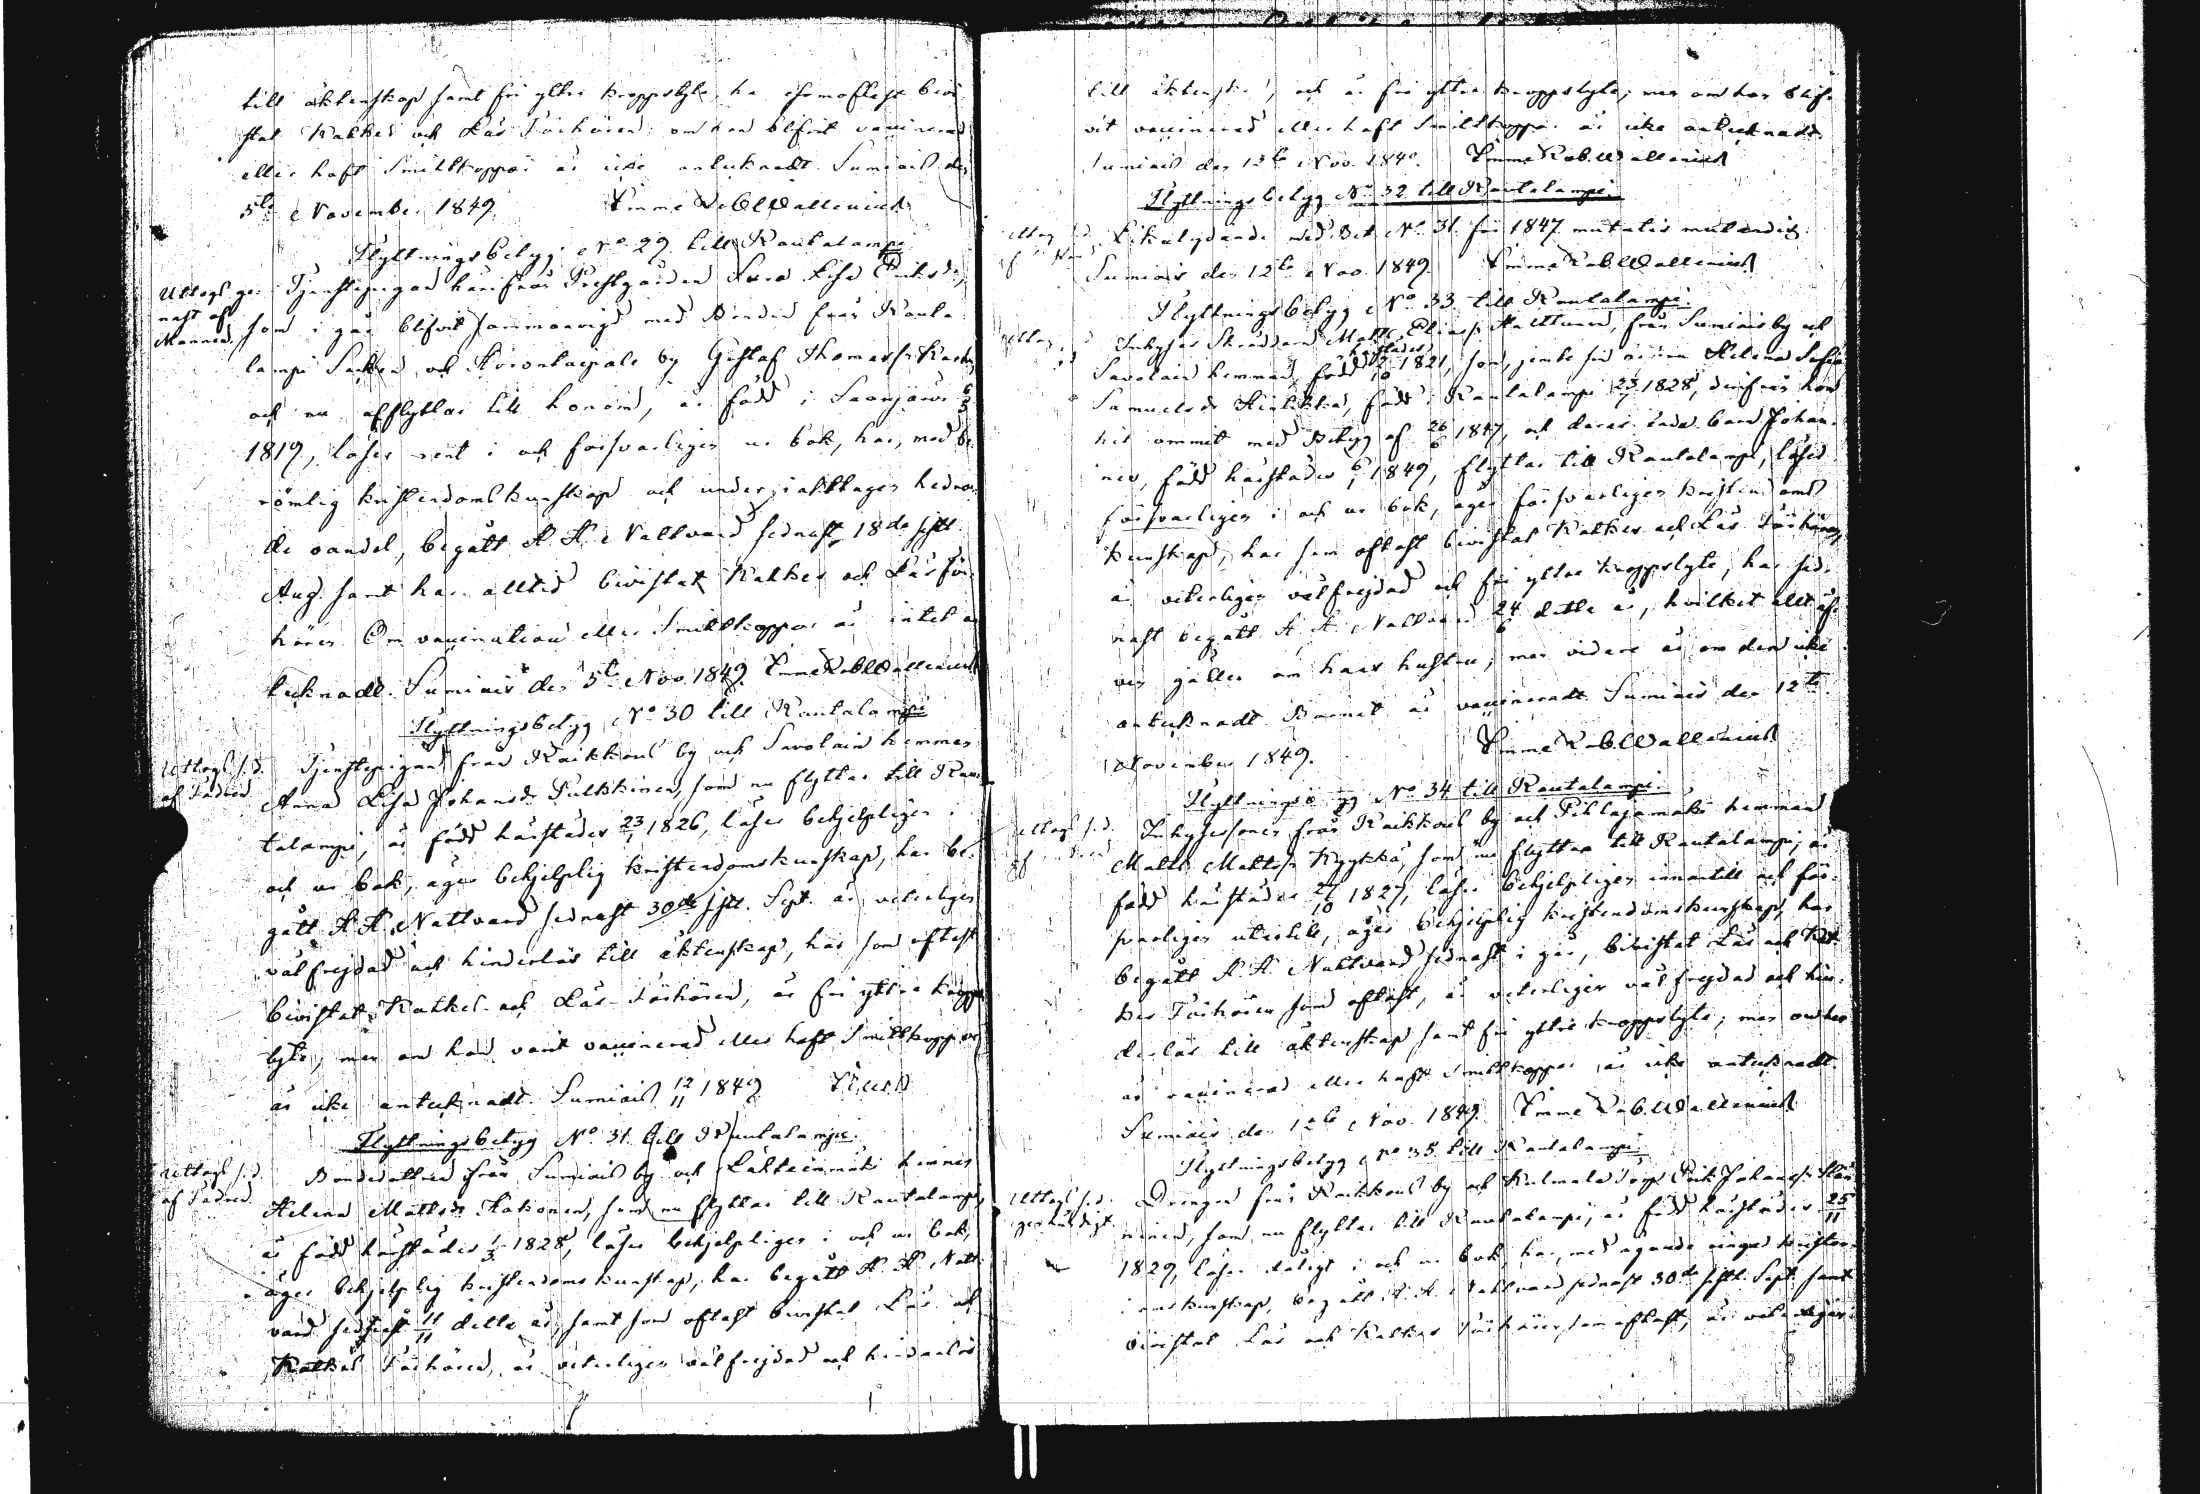 till äktenskap samt fri yttre kroppslyte, ha som oftast bevi
stat Katkes och Läs Förhören; om han blifvit vaccinerad
eller haft Smittkoppor är icke antecknadt. Sumiais den
5te November 1849. Emme Rob. Wallenius
Flyttningsbetyg No 29 till Rautalampi
Uttogs ge-
nast af
Mannen.
Tjenstepigan härifrån Prestgården Eva Lisa Eriksdr,
som i går blifvit sammanvigd med Bonden från Rauta
lampi Socken och Horontaipale by Gustaf Thomass.
och nu afflyttar till honom, är född i Saarijärvi
1819, läser rent i och försvarligen ur bok, har, med be
römlig kristendomskunskap och under iakttagen hedran
de vandel, begått H. H. Nattvard sednast 18de sistl.
Aug. samt har alltid bevistat Katkes och Läsför
hören Om vaccination eller Smittkoppor är intet an
tecknadt. Sumiais den 5te Nov 1849. Emme Rob Wallenius
Flyttningsbetyg No 30 till Rautalampi
Uttogs s. d.
af Fadren
Tjenstepigan från Raikkous by och Savolain hemman
Anna Lisa Johansdr Pulkkinen, som nu flyttar till Rau
talampi, är född härstädes 23/1 1826, läser behjelpligen i
och ur bok, äger behjelplig kristendomskunskap, har be-
gått H H Nattvard sednast 30de sistl. Sept. är veterligen
välfrejdad och hinderlös till äktenskap, har som oftast
bevistat Katkes- och Läs-Förhören, är fri yttre kropps
lyte; men om hon varit vaccinerad eller haft Smittkoppor
är icke antecknadt. Sumiais 12/11 1849
Flyttningsbetyg No 31 till Rautalampi.
Uttogs s. d.
af Fadren
Bondedottren från Sumiais by och hemman
Helena Mattsdr Hakonen, som nu flyttar till Rautalampi,
är född härstädes 1/3 1828, läser behjelpligen i och ur bok,
äger behjelplig kristendomskunskap, har begått H. H. Natt
vard sednast 11/11 detta år, samt som oftast bevistat Läs och
Katkes Förhören, är veterligen välfrejdad och hinderlös
till äktenskap, och är fri yttre kroppslyte; men om hon blif-
vit vaccinerad eller haft Smittkoppor är icke antecknadt.
Sumiais den 12te Nov. 1849. Emme Rob. Wallenius
Flyttningsbetyg No 32 till Rautalampi.
Likalydande med Bet. No 31 för 1847 mutatis mutandis.
Sumiais den 12te Nov. 1849. Emme Rob. Wallenius
Flyttningsbetyg No 33 till Rautalampi.
Inhyses Skräddaren Matts Eliass. från Sumiais by och
Savolain hemman, född härstädes 1821, som, jemte sin hustru Helena Sofia
Samuelsdr född i Rautalampi 23/7 1828, derifrån hon
hit kommit med Betyg af 26/6 1847, och deras enda barn Johan-
nes, född härstädes 1849, flyttar till Rautalampi, läser
försvarligen i och ur bok, äger försvarligen kristendoms
kunskap, har som oftast bevistat Katkes och Läs Förhören,
är veterligen välfrejdad och fri yttre kroppslyte, har sed-
nast begått H. H. Nattvard 24/6 detta år, hvilket allt äf-
ven gäller om hans hustru; men vidare är om dem icke
antecknadt. Barnet är vaccineradt. Sumiais den 12te
November 1849. Emme Rob. Wallenius
Flyttningsbetyg No 34 till Rautalampi.
Uttogs s. d.
Inhysessonen från Raikkous by och Pihlajamäki hemman
Matts Mattss. som nu flyttar till Rautalampi, är
född härstädes 27/10 1827, läser behjelpligen innantill och för-
svarligen utantill, äger behjelplig kristendomskunskap, har
begått H. H. Nattvard sednast i går, bevistat Läs och Kat
kes Förhören som oftast, är veterligen välfrejdad och hin-
derlös till äktenskap samt fri yttre kroppslyte; men om han
är vaccinerad eller haft Smittkoppor är icke antecknadt.
Sumiais den 12te Nov. 1849. Emme Rob. Wallenius
Flyttningsbetyg No 35 till Rautalampi.
Uttogs s. d.
Drängen från Raikkous by och Kulmala Torp Erik Johanss.
ninen, som nu flyttar till Rautalampi, är född härstädes 25/11
1829, läser dåligt i och ur bok, har, med ägande ringa kristen-
domskunskap, begått H. H. Nattvard sednast 30de sistl. Sept. samt
bevistat Läs och Katkes Förhören som oftast, är veterligen